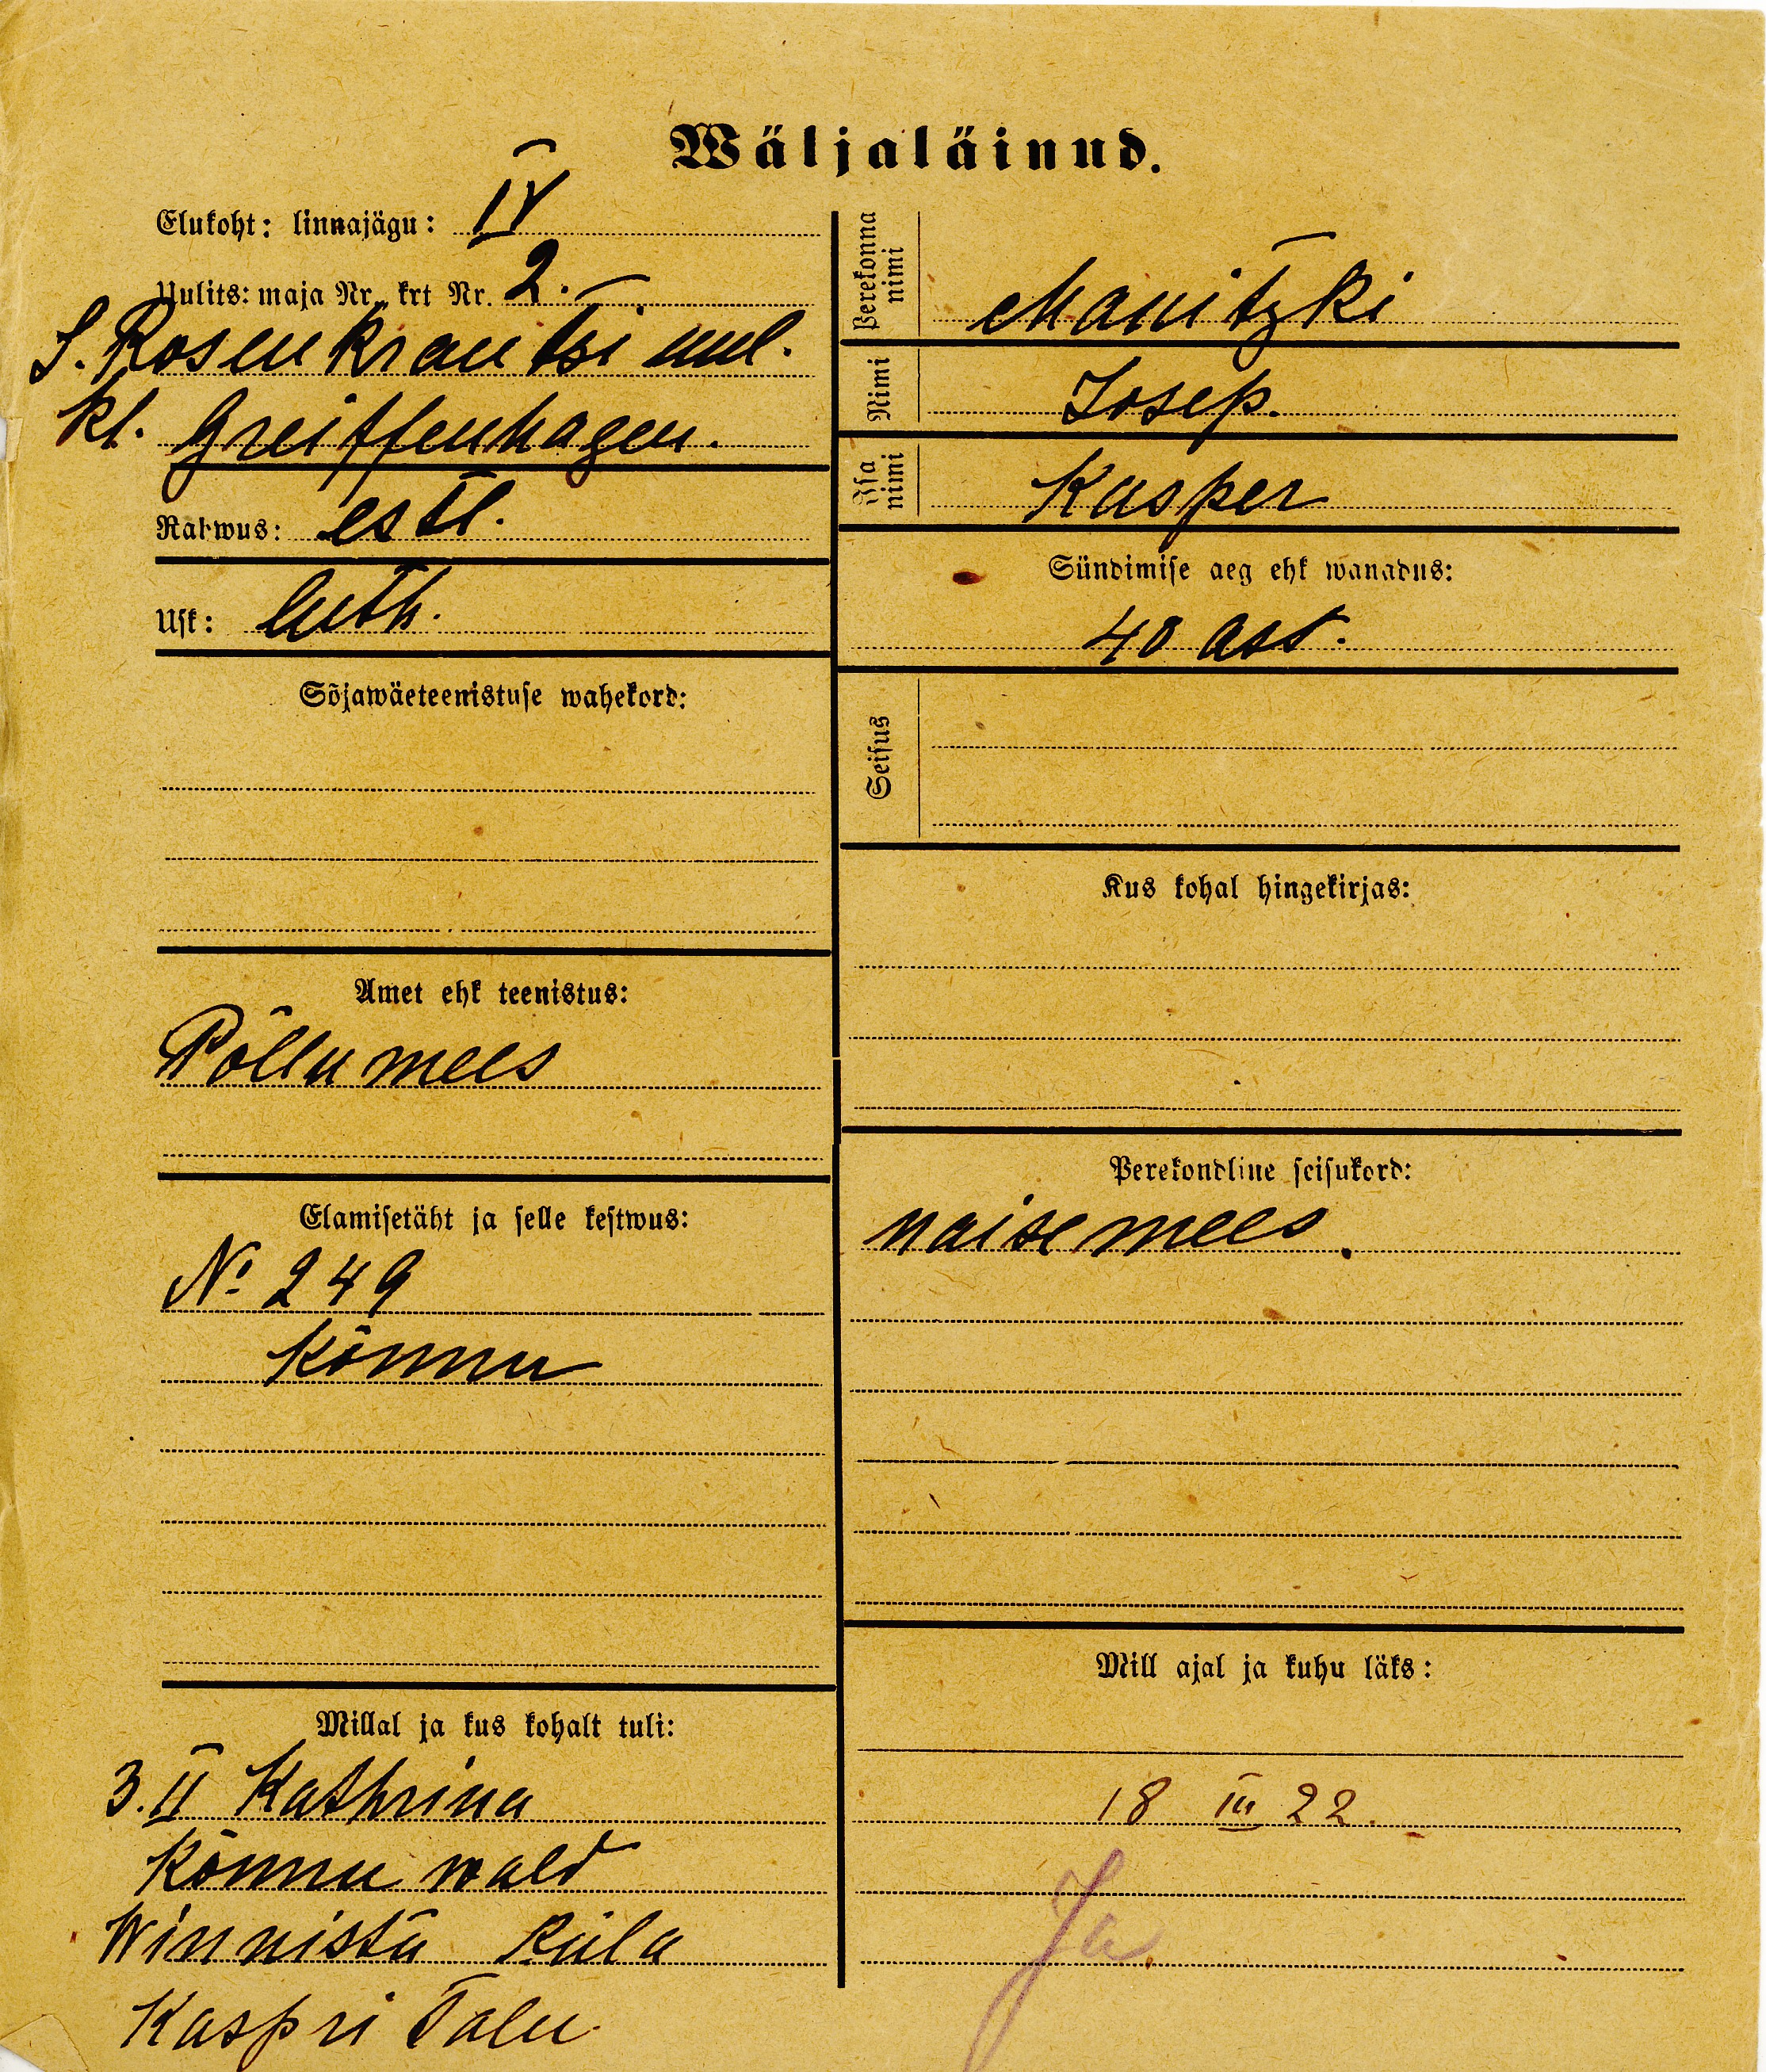 Wäljaläinud.
Elukoht: linnajägu: IV
Uulits: maja Nr., krt Nr. 2.
S. Rosenkrantsi uul.
kl. Greiffenhagen.
Rahwus: estl.
Usk: luth.
Sõjawäeteenistuse wahekord:
Amet ehk teenistus:
Põllumees
Elamisetäht ja selle kestwus:
No 249
Kõnnu
Millal ja kus kohalt tuli:
3. II Kathrina
Kõnnu wald
Winnistu küla
Kaspri talu
Perekonna nimi
Manitzki
Nimi
Josep.
Isa nimi
Kasper
Sündimise aeg ehk wanadus:
40 aast.
Seisus
Kus kohal hingekirjas:
Perekondline seisukord:
naisemees.
Mill ajal ja kuhu läks:
18 III 22.
Ja